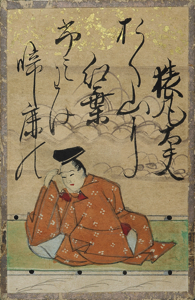 猿丸大夫
おく山に
紅葉
ふみわけ
啼鹿の